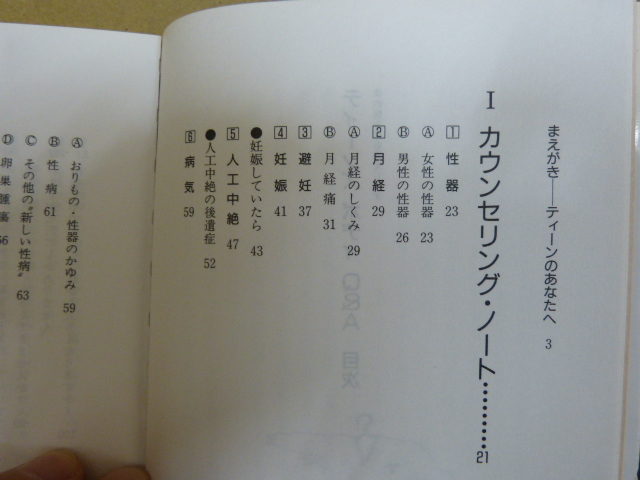 まえがき――ティーンのあなたへ 3
Ⅰ カウンセリング・ノート………… 21
1 性器 23
Ⓐ 女性の性器 23
Ⓑ 男性の性器 26
2 月経 29
Ⓐ 月経のしくみ 29
Ⓑ 月経痛 31
3 避妊 37
4 妊娠 41
●妊娠していたら 43
5 人工中絶 47
●人工中絶の後遺症 52
6 病気 59
Ⓐ おりもの・性器のかゆみ 59
Ⓑ 性病 61
Ⓒ その他の“新しい性病” 63
Ⓓ 卵巣腫瘍